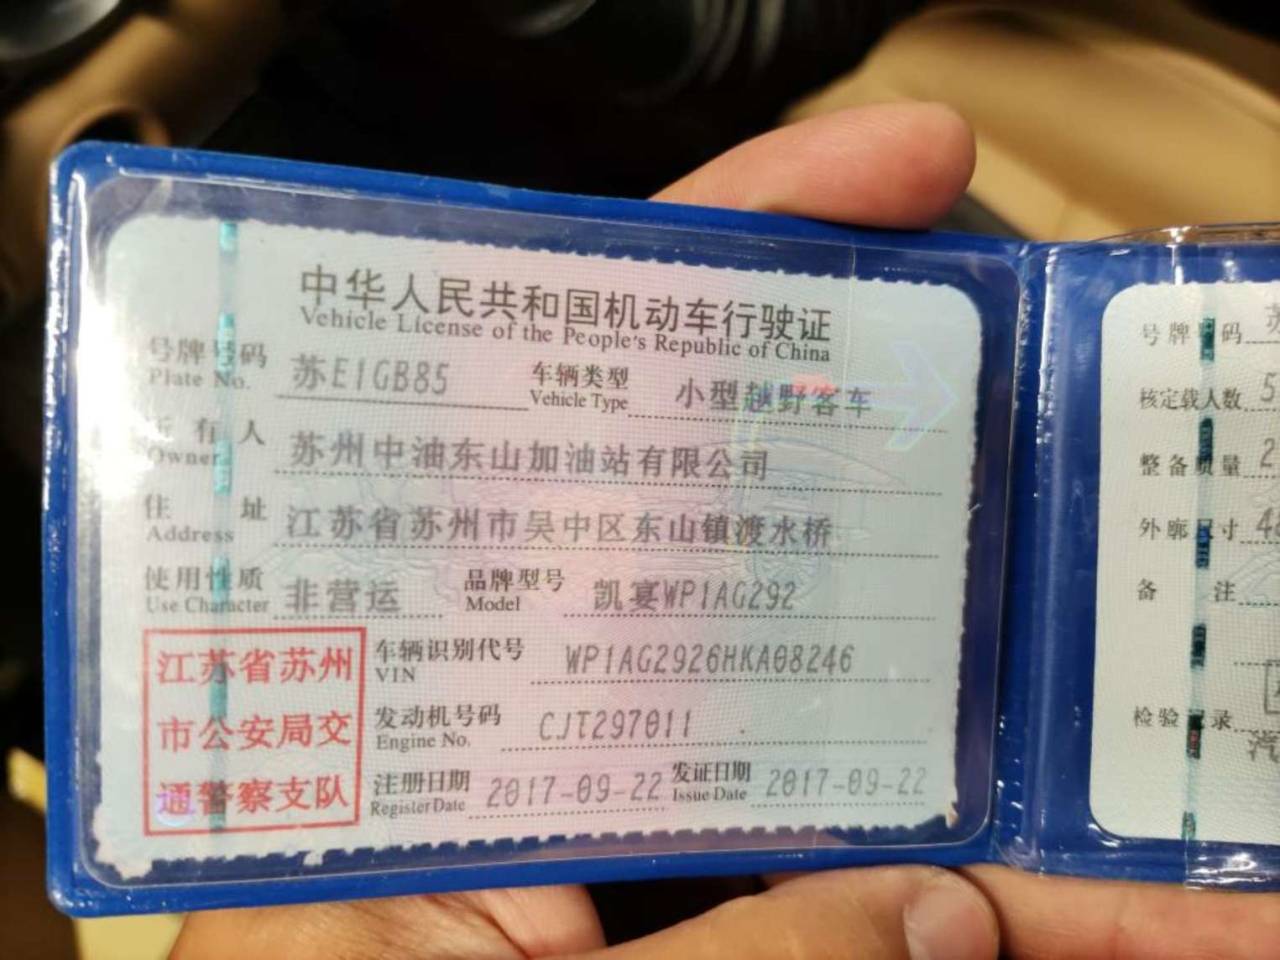 中华人民共和国机动车行驶证
Vehicle License of the People's Republic of China
号牌号码 苏E1GB85 车辆类型 小型越野客车
Plate No. Vehicle Type
所有人 苏州中油东山加油站有限公司
Owner
住址 江苏省苏州市吴中区东山镇渡水桥
Address
使用性质 非营运 品牌型号 凯宴WP1AG292
Use Character Model
江苏省苏州
市公安局交
通警察支队
车辆识别代号 WP1AG2926HKA08246
VIN
发动机号码 CJT297011
Engine No.
注册日期 2017-09-22 发证日期 2017-09-22
Register Date Issue Date
号牌号码 苏
核定载人数 5
整备质量 2
外廓尺寸 4
备注
检验记录
汽